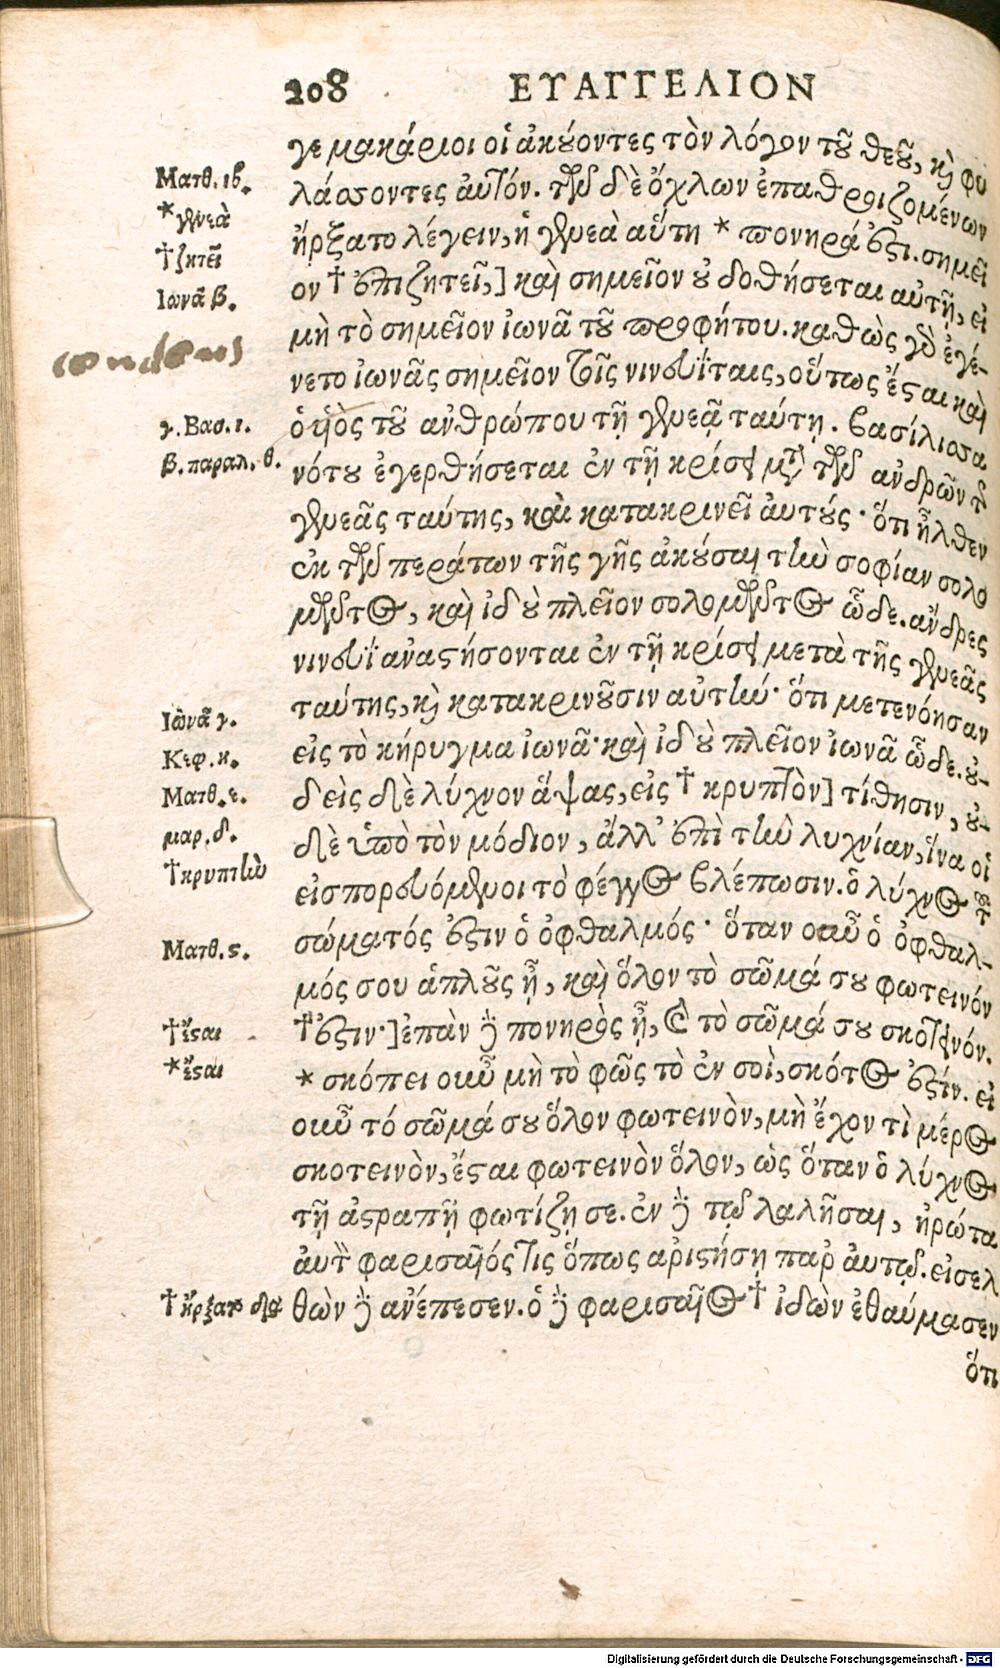 208 ΕΥΑΓΓΕΛΙΟΝ
γε μακάριοι οἱ ἀκούοντες τὸν λόγον τοῦ θεοῦ, καὶ φυ
Ματθ. ιβ.
λάσσοντες αὐτόν. τῶν δὲ ὄχλων ἐπαθροιζομένων
*γενεὰ
ἤρξατο λέγειν, ἡ γενεὰ αὕτη * πονηρά ἐστι. σημεῖ
†ζητεῖ
ον † ἐπιζητεῖ,] καὶ σημεῖον οὐ δοθήσεται αὐτῇ, εἰ
Ιωνᾶ β.
μὴ τὸ σημεῖον ἰωνᾶ τοῦ προφήτου. καθὼς γὰρ ἐγέ-
νετο ἰωνᾶς σημεῖον τοῖς νινευΐταις, οὕτως ἔσται καὶ
ὁ υἱὸς τοῦ ἀνθρώπου τῇ γενεᾷ ταύτῃ. βασίλισσα
γ. Βασ. ι.
νότου ἐγερθήσεται ἐν τῇ κρίσει μετὰ τῶν ἀνδρῶν τῆς
β. παραλ. θ.
γενεᾶς ταύτης, καὶ κατακρινεῖ αὐτούς· ὅτι ἦλθεν
ἐκ τῶν περάτων τῆς γῆς ἀκοῦσαι τὴν σοφίαν σολο
μῶντος, καὶ ἰδοὺ πλεῖον σολομῶντος ὧδε. ἄνδρες
νινευῒ ἀναστήσονται ἐν τῇ κρίσει μετὰ τῆς γενεᾶς
ταύτης, καὶ κατακρινοῦσιν αὐτήν· ὅτι μετενόησαν
Ιωνᾶ γ.
εἰς τὸ κήρυγμα ἰωνᾶ· καὶ ἰδοὺ πλεῖον ἰωνᾶ ὧδε. οὐ-
Κεφ. κ.
δεὶς δὲ λύχνον ἅψας, εἰς † κρυπτὸν] τίθησιν, οὐ-
Ματθ. ε.
δὲ ὑπὸ τὸν μόδιον, ἀλλ' ἐπὶ τὴν λυχνίαν, ἵνα οἱ
μαρ. δ.
†κρυπτὴν
εἰσπορευόμενοι τὸ φέγγος βλέπωσιν. ὁ λύχνος τοῦ
σώματός ἐστιν ὁ ὀφθαλμός· ὅταν οὖν ὁ ὀφθαλ-
Ματθ. ς.
μός σου ἁπλοῦς ᾖ, καὶ ὅλον τὸ σῶμά σου φωτεινόν
†ἔσται
†ἐστιν·] ἐπὰν δὲ πονηρὸς ᾖ, καὶ τὸ σῶμά σου σκοτεινόν.
*ἔσται
* σκόπει οὖν μὴ τὸ φῶς τὸ ἐν σοὶ, σκότος ἐστίν. εἰ
οὖν τό σῶμά σου ὅλον φωτεινὸν, μὴ ἔχον τὶ μέρος
σκοτεινὸν, ἔσται φωτεινὸν ὅλον, ὡς ὅταν ὁ λύχνος
τῇ ἀστραπῇ φωτίζῃ σε. ἐν δὲ τῷ λαλῆσαι, ἠρώτα
αὐτὸν φαρισαῖός τις ὅπως ἀριστήσῃ παρ' αὐτῷ. εἰσελ
θὼν δὲ ἀνέπεσεν. ὁ δὲ φαρισαῖος † ἰδὼν ἐθαύμασεν
†ἤρξατο
ὅτι
Digitalisierung gefördert durch die Deutsche Forschungsgemeinschaft - DFG